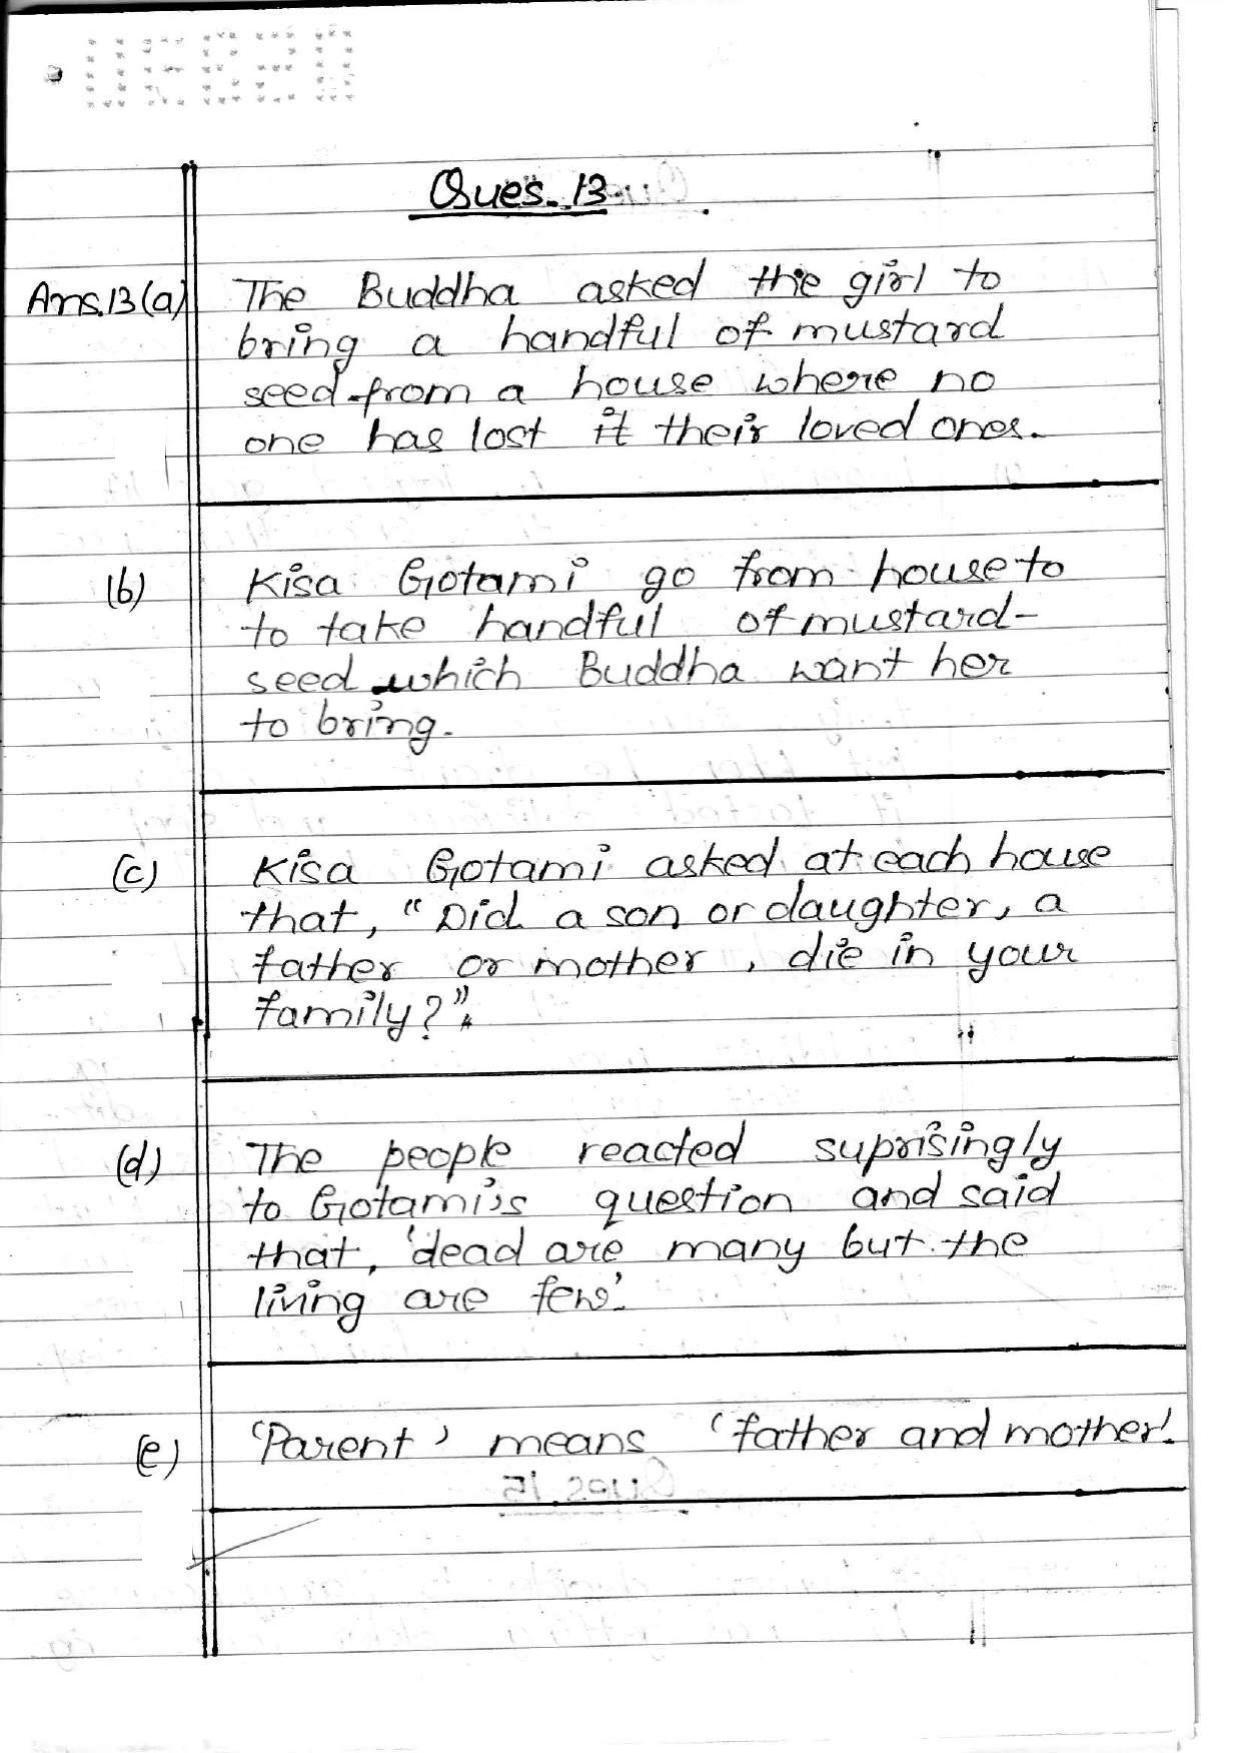 Ques. 13
Ans.13(a) The Buddha asked the girl to
bring a handful of mustard
seed from a house where no
one has lost it their loved ones.
(b) Kisa Gotami go from house to
to take handful of mustard-
seed which Buddha want her
to bring.
(c) Kisa Gotami asked at each house
that, "Did a son or daughter, a
father or mother, die in your
family?".
(d) The people reacted suprisingly
to Gotami's question and said
that, 'dead are many but the
living are few'.
(e) 'Parent' means 'father and mother'.